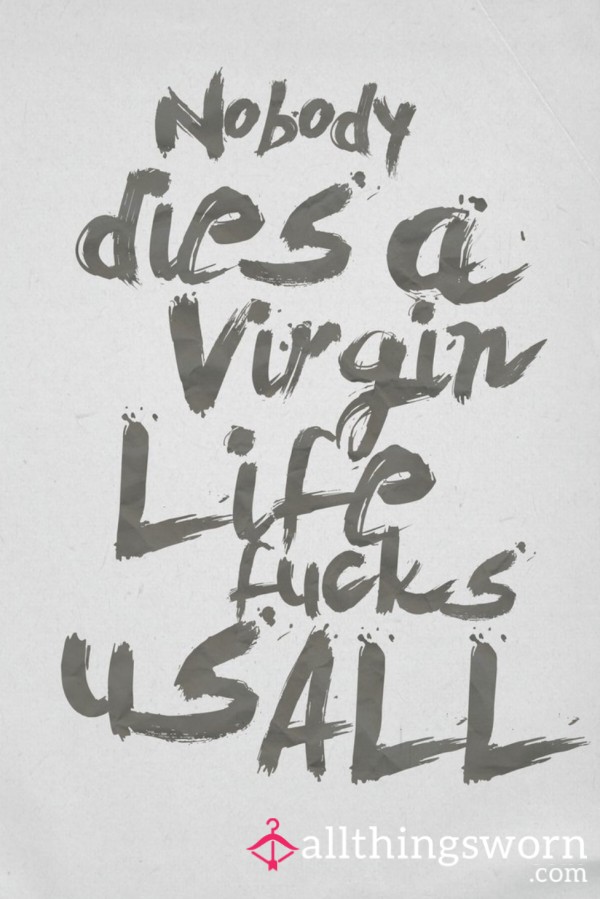 Nobody
dies a
Virgin
Life
fucks
us ALL
allthingsworn
.com